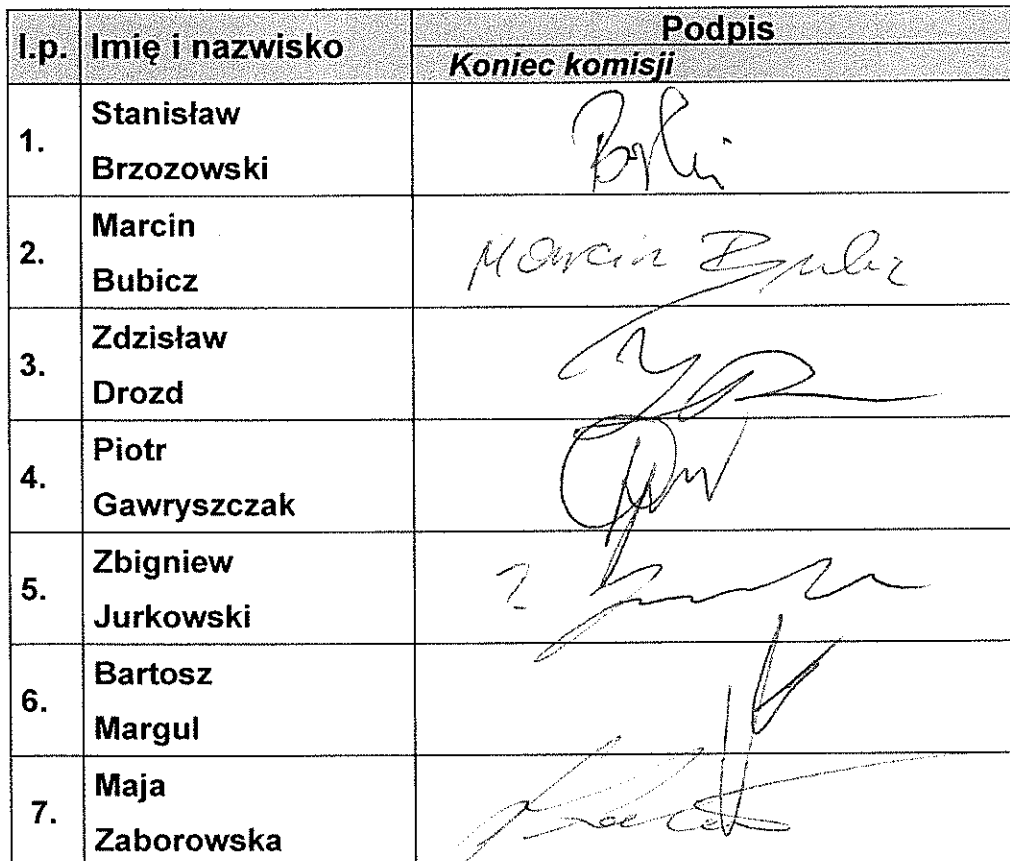 l.p. Imię i nazwisko Podpis
Koniec komisji
1. Stanisław
Brzozowski
2. Marcin
Bubicz
Marcin
3. Zdzisław
Drozd
4. Piotr
Gawryszczak
5. Zbigniew
Jurkowski
6. Bartosz
Margul
7. Maja
Zaborowska